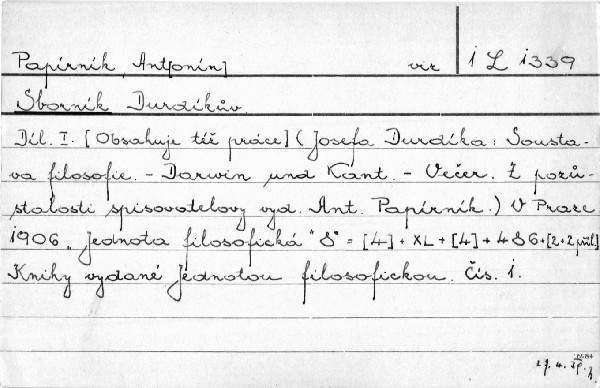 Papírník, Ant[onín] viz 1 L 1339
Sborník Durdíkův.
Díl. I. [Obsahuje též práce] (Josefa Durdíka: Sousta-
va filosofie. - Darwin und Kant. - Večer. Z pozů-
stalosti spisovatelovy vyd. Ant. Papírník.) V Praze
1906, Jednota filosofická "8° = [4] + XL + [4] + 486 + [2+2 příl]
Knihy vydané Jednotou filosofickou. Čís. 1.
27. 4.